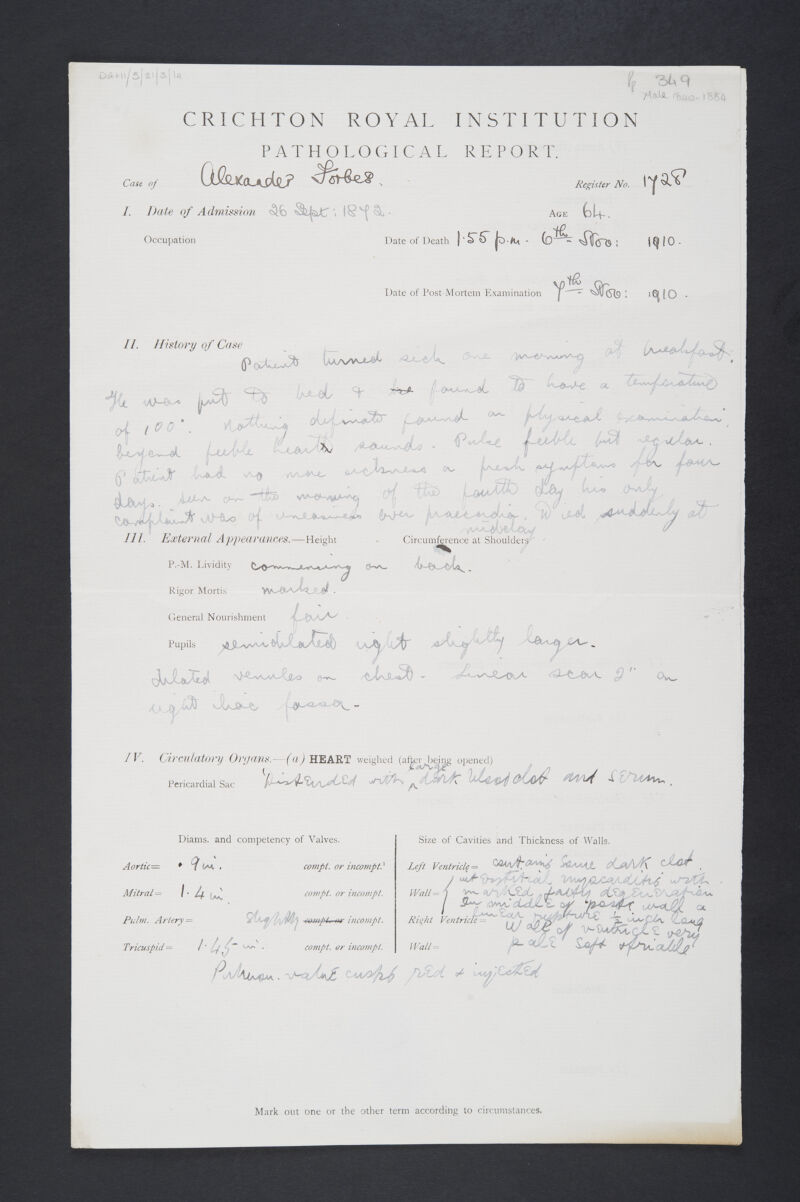 DGH1/5/21/3/14
Pg 349
Male 1840-1884
CRICHTON ROYAL INSTITUTION
PATHOLOGICAL REPORT.
Case of Alexander Forbes. Register No. 1728
I. Date of Admission 26 Sept: 1872. AGE 64.
Occupation Date of Death 1.55 p.m. 6th Nov: 1910.
Date of Post-Mortem Examination 7th Nov: 1910.
II. History of Case
Patient turned sick one morning at breakfast.
He was put to bed & found to have a temperature
of 100°. Nothing definate found on physical examination,
beyond feeble heart sounds. Pulse feeble but regular.
Patient had no more sickness or fresh symptoms for four
days. Seen on the morning of the fourth day his only
complaint was of uneasiness over praecordia. Died suddenly at
midday.
III. External Appearances.—Height Circumference at Shoulders
P.-M. Lividity commencing on back.
Rigor Mortis marked.
General Nourishment fair
Pupils semidilated right slightly larger.
Dilated venules on chest. Linear scar 2" on
right iliac fossa.
IV. Circulatory Organs.—(a) HEART weighed (after being opened)
Pericardial Sac Distended with large dark blood clot and serum.
Diams. and competency of Valves. Size of Cavities and Thickness of Walls.
Aortic= .9 in. compt. or incompt. Left Ventricle= contains some dark clot.
Mitral= 1.4 in. compt. or incompt. Wall= interstitial myocarditis with
marked fatty degeneration
In middle of post. wall a
Pulm. Artery= slightly compt. or incompt. Right Ventricle= linear rupture ½ inch long
Wall of ventricle very
Tricuspid= 1.45 in. compt. or incompt. Wall= pale soft & friable
Pulmon. valve cusps red & injected
Mark out one or the other term according to circumstances.